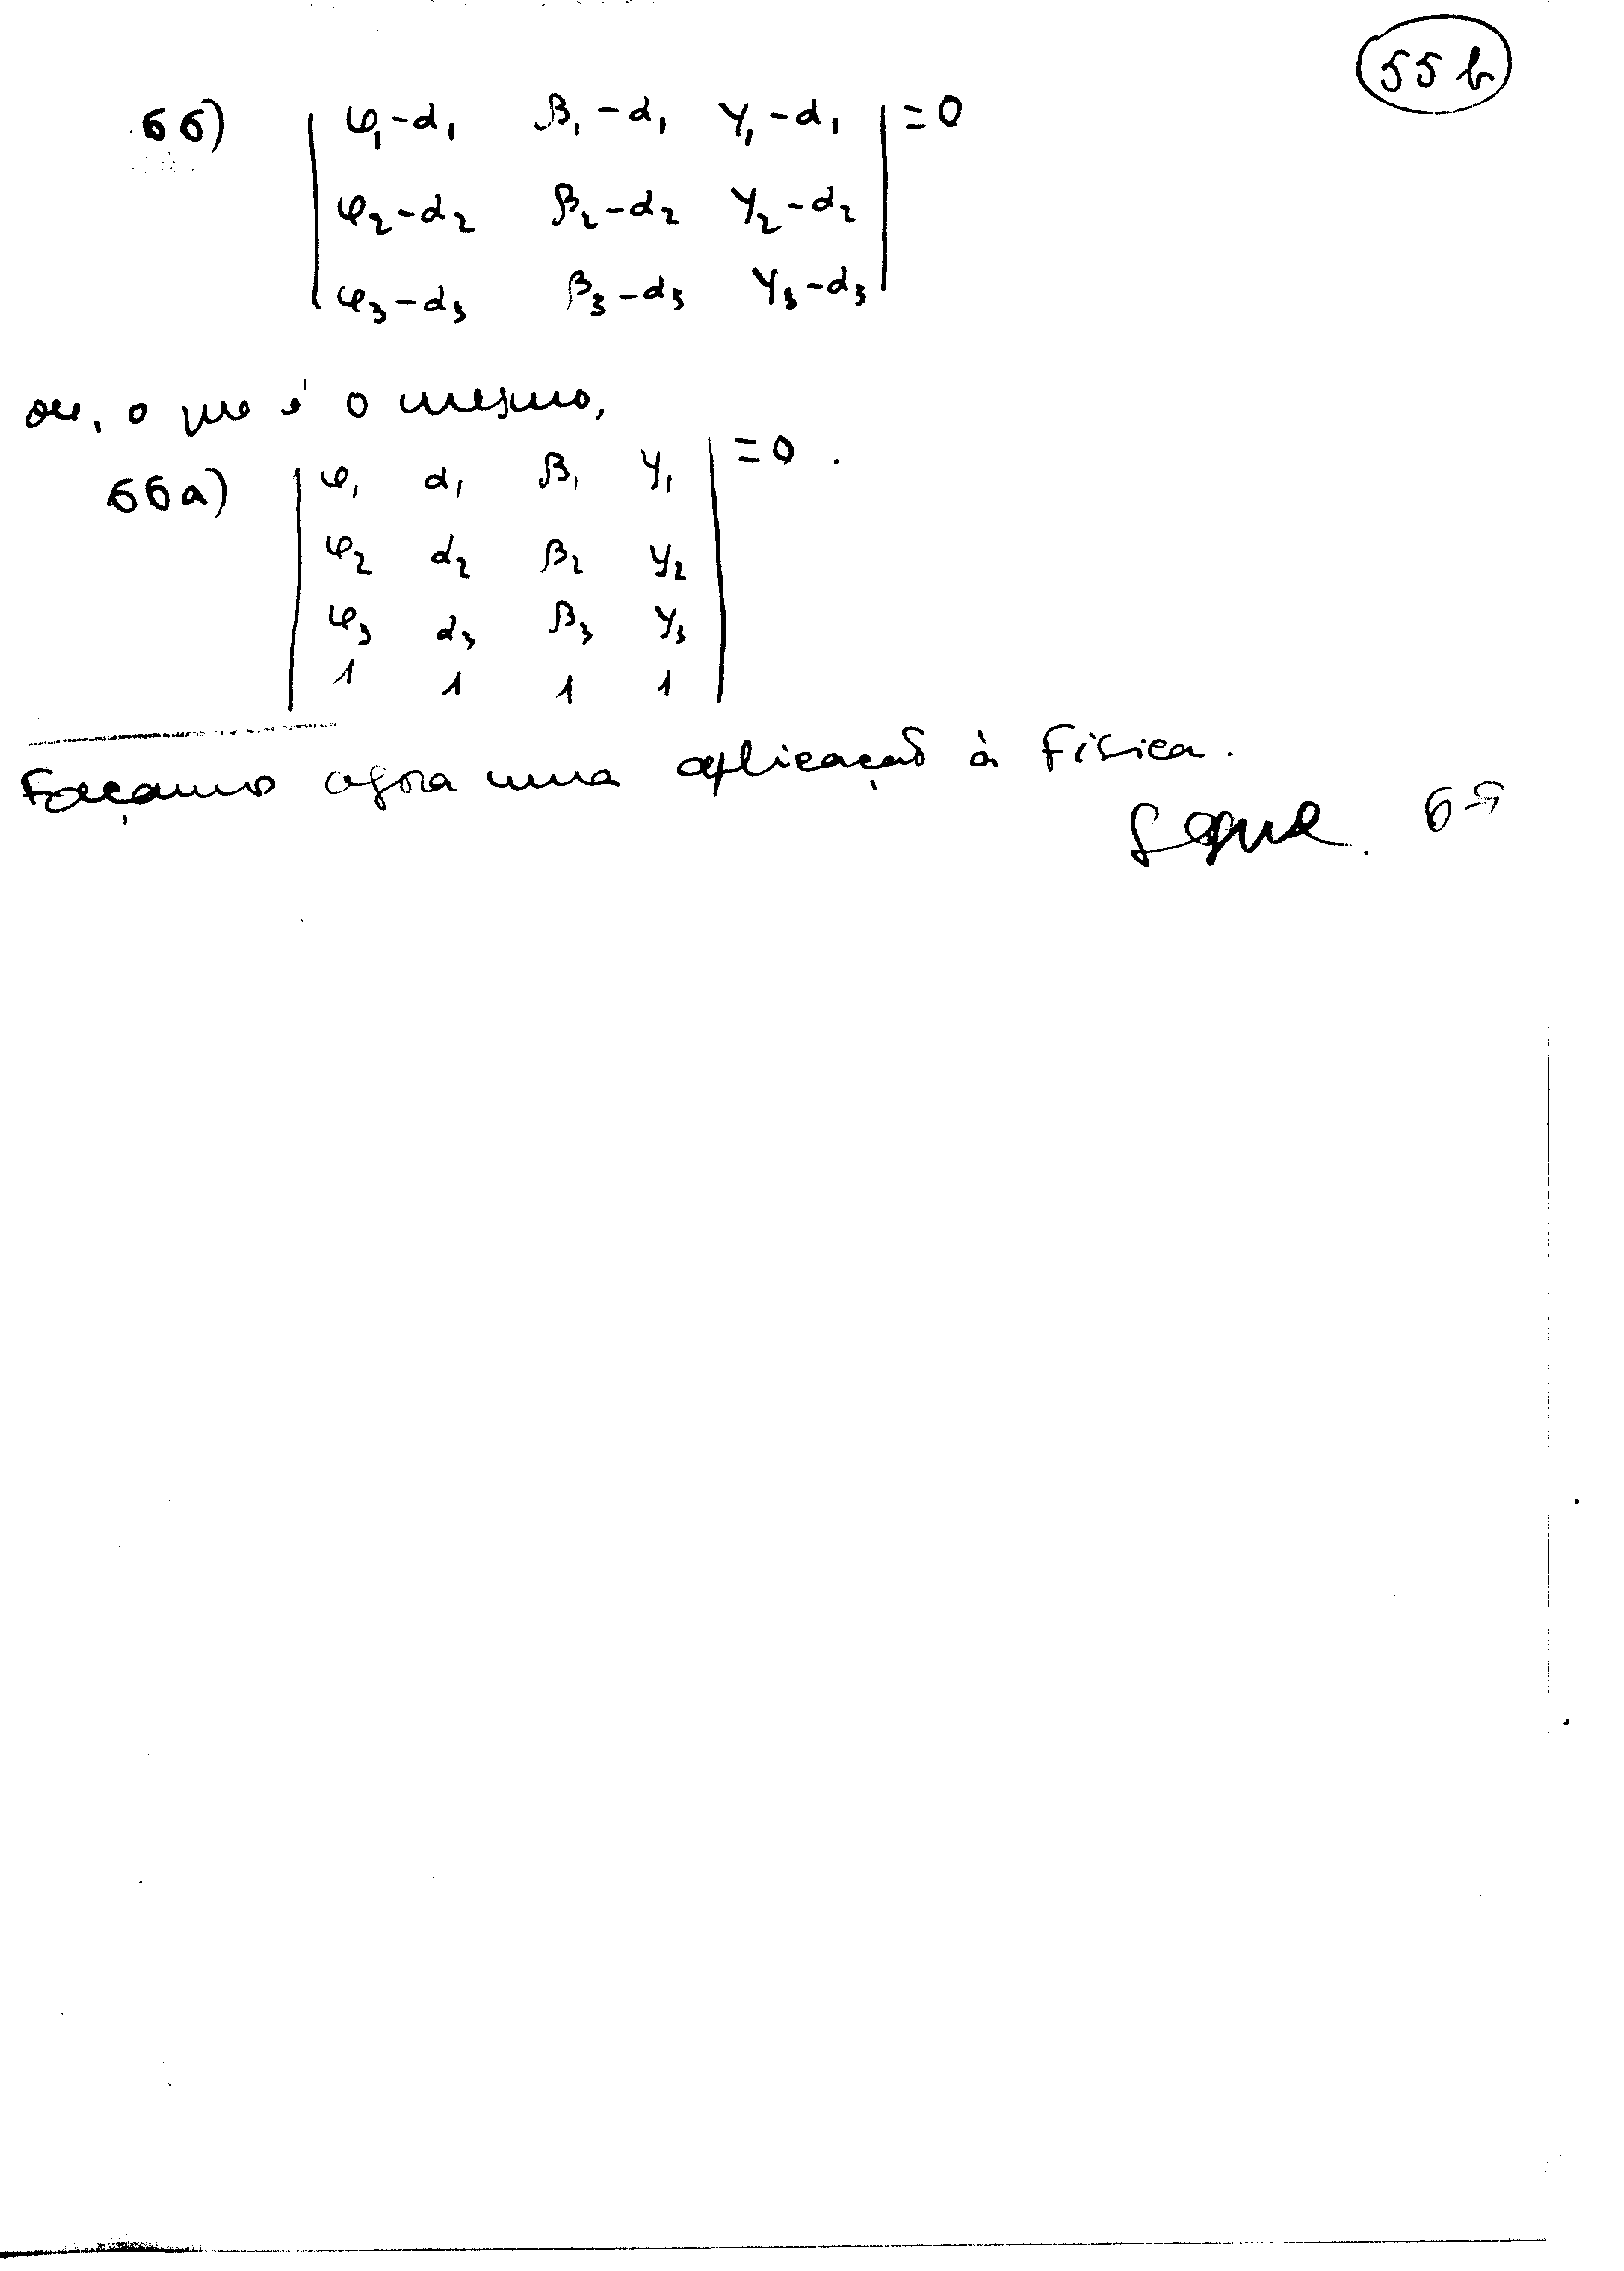 55 b
66) | φ₁-α₁ β₁-α₁ γ₁-α₁ | =0
φ₂-α₂ β₂-α₂ γ₂-α₂
φ₃-α₃ β₃-α₃ γ₃-α₃
ou, o que é o mesmo,
66a) | φ₁ α₁ β₁ γ₁ | =0.
φ₂ α₂ β₂ γ₂
φ₃ α₃ β₃ γ₃
1 1 1 1
Façamos agora uma aplicação à Física.
Segue.